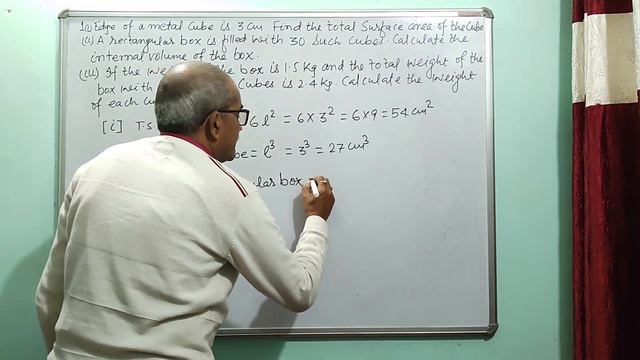 1(i) Edge of a metal Cube is 3 cm. Find the total Surface area of the Cube
(ii) A rectangular box is filled with 30 Such Cubes. Calculate the
internal volume of the box.
(iii) If the box is 1.5 Kg and the total weight of the
box with Cubes is 2.4 kg. Calculate the weight
of each
[i] 6l² = 6×3² = 6×9 = 54 cm²
= l³ = 3³ = 27 cm³
box